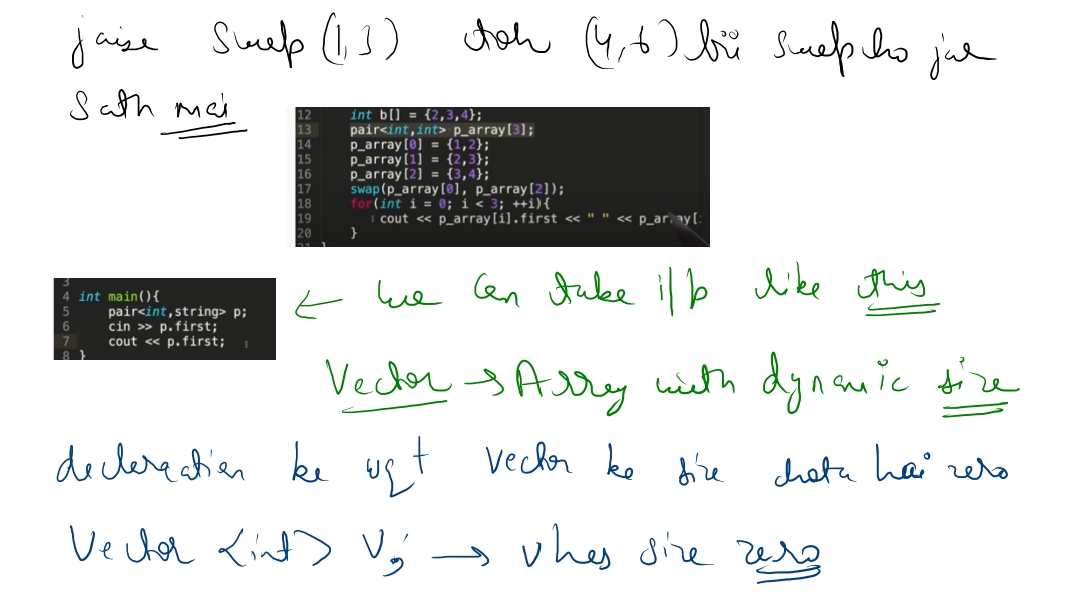 jaise Swap (1,3) toh (4,6) bii swap ho jae
Sath mai
12 int b[] = {2,3,4};
13 pair<int,int> p_array[3];
14 p_array[0] = {1,2};
15 p_array[1] = {2,3};
16 p_array[2] = {3,4};
17 swap(p_array[0], p_array[2]);
18 for(int i = 0; i < 3; ++i){
19 cout << p_array[i].first << " " << p_array[
20 }
21 }
3
4 int main(){
5 pair<int,string> p;
6 cin >> p.first;
7 cout << p.first;
8 }
← we can take i/p like this
Vector → Array with dynamic size
declaration ke wqt vector ke size hota hai zero
Vector <int> V; → v has size zero